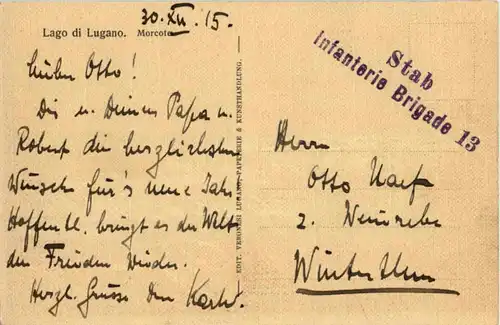 30.XII.15.
Lago di Lugano. Morcote
Lieber Otto!
Dir u. Deinem Papa u.
Robert die herzlichsten
Wünsche für's neue Jahr
Hoffentl. bringt es der Welt
den Frieden wieder.
Herzl. Grüsse Dein Karl.
EDIT. VERONESI LUGANO-PAPETERIE & KUNSTHANDLUNG.
Stab
Infanterie Brigade 13
Herrn
Otto Naef
z.
Winterthur